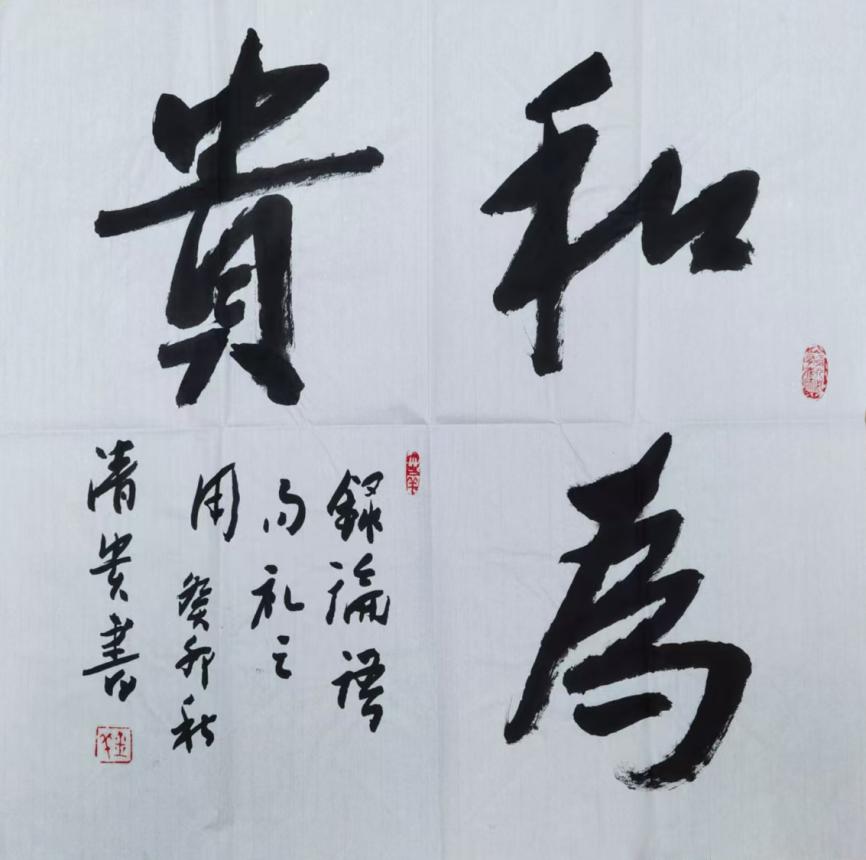 和為
貴
錄論語
句礼之
用 癸卯秋
清贵書